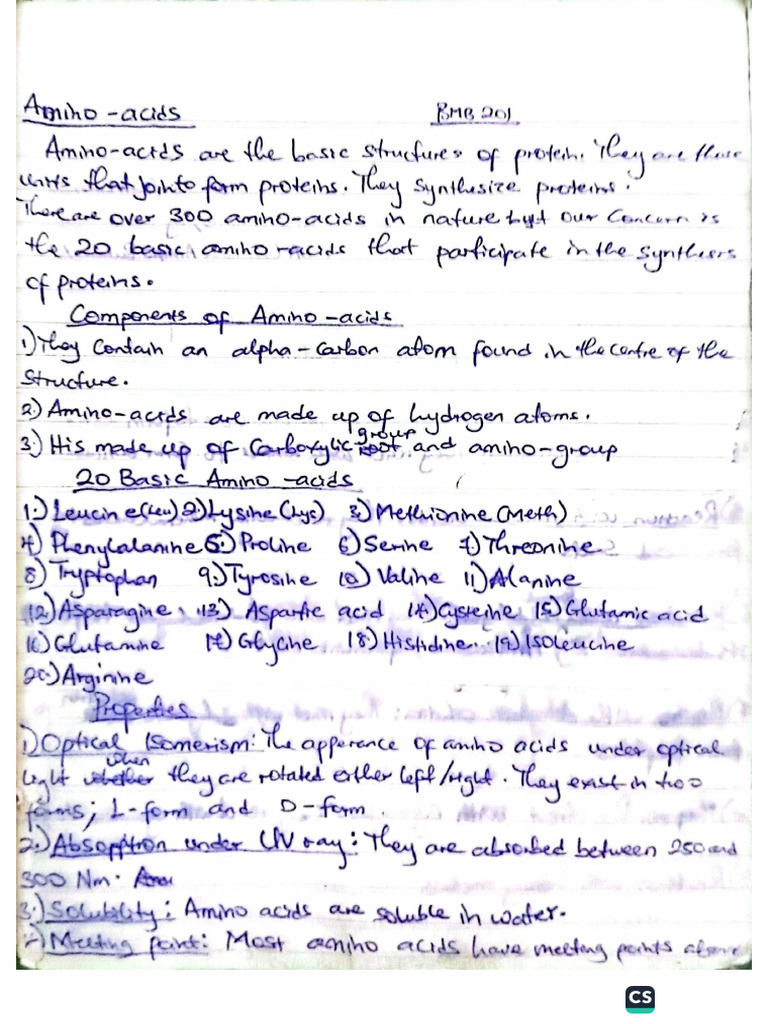 Amino-acids BMB 201
Amino-acids are the basic structures of protein. They are those
units that join to form proteins. They synthesize proteins.
There are over 300 amino-acids in nature but our concern is
the 20 basic amino-acids that participate in the synthesis
of proteins.
Components of Amino-acids
1) They contain an alpha-carbon atom found in the centre of the
structure.
2) Amino-acids are made up of hydrogen atoms.
3) It is made up of carboxylic group and amino-group
20 Basic Amino-acids
1) Leucine (Leu) 2) Lysine (Lys) 3) Methionine (Meth)
4) Phenylalanine 5) Proline 6) Serine 7) Threonine
8) Tryptophan 9) Tyrosine 10) Valine 11) Alanine
12) Asparagine 13) Aspartic acid 14) Cysteine 15) Glutamic acid
16) Glutamine 17) Glycine 18) Histidine 19) Isoleucine
20) Arginine
Properties
1) Optical Isomerism: The apperance of amino acids under optical
light when they are rotated either left/right. They exist in two
forms; L-form and D-form.
2) Absopption under UV ray: They are absorbed between 250 and
300 Nm.
3) Solubility: Amino acids are soluble in water.
4) Melting point: Most amino acids have melting points above
CS